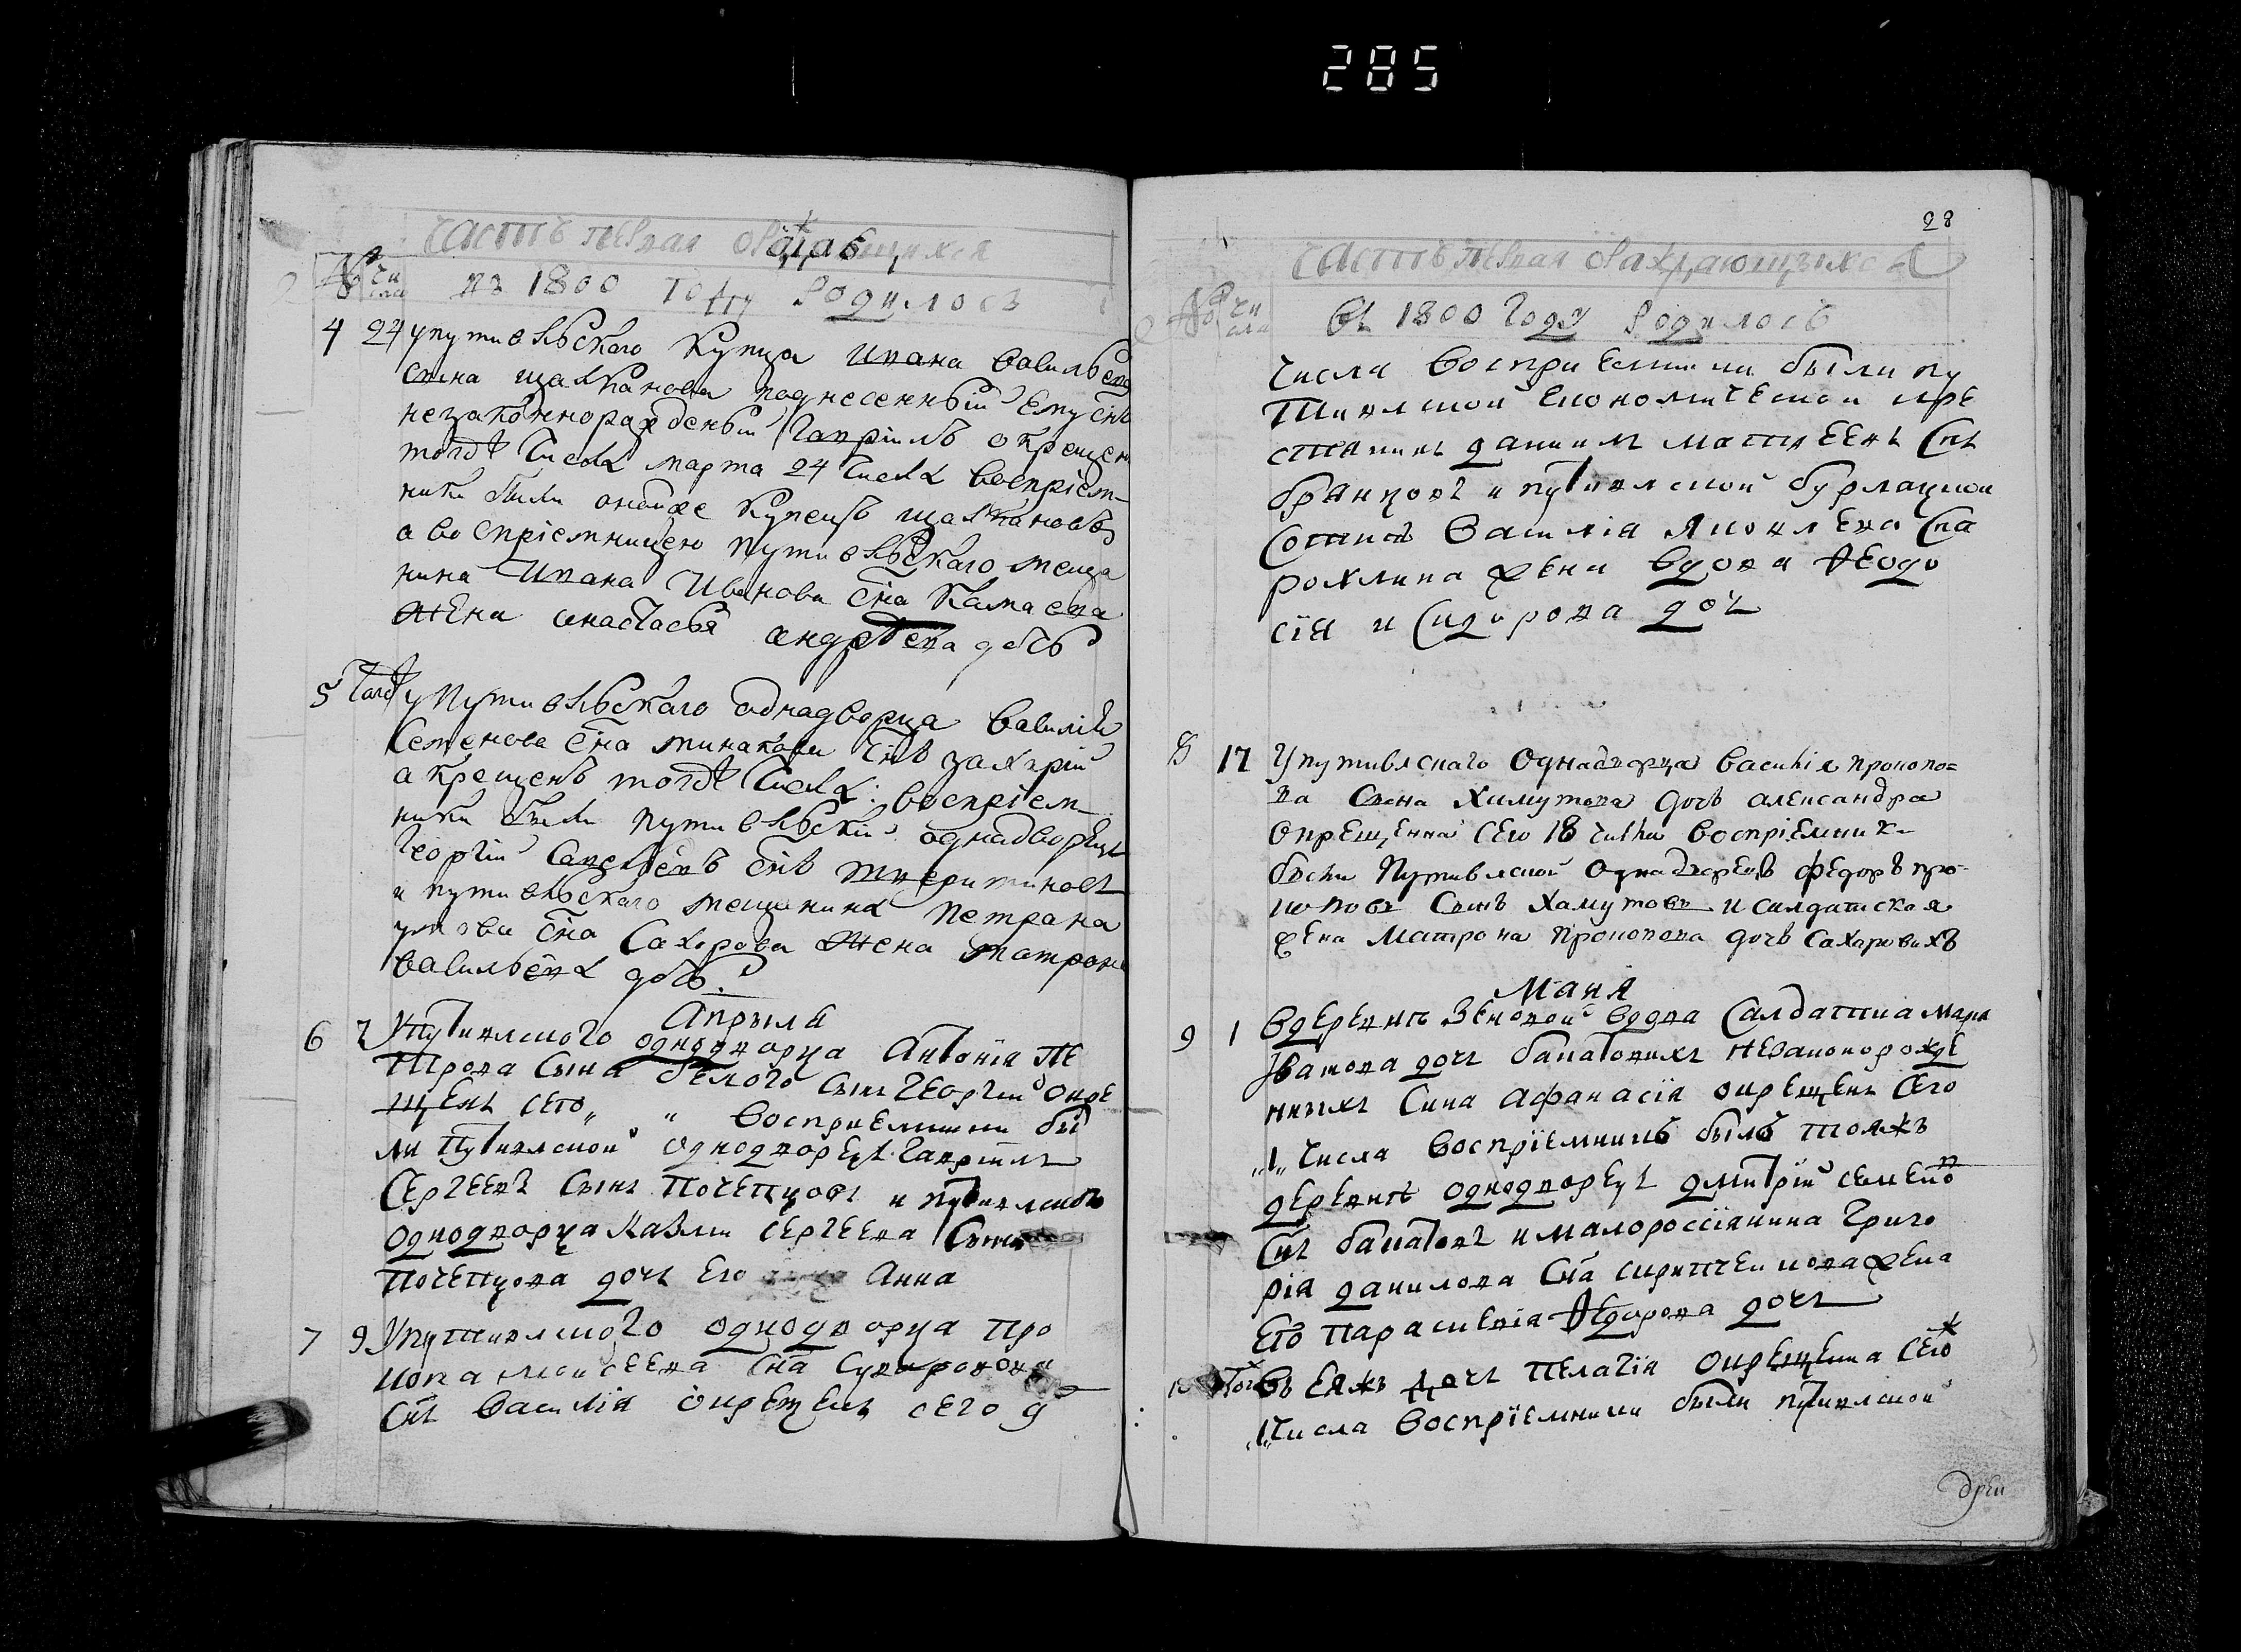 285
Часть первая ораждающихся
№ числа въ 1800 году родилось
4 24 у путивльскаго купца Ивана Василева
сына щалканова поднесенный ему снъ
незаконнорожденый Гавріилъ окрещен
тогож числа марта 24 числа воспріем
ники были онойже купецъ щалкановъ
а воспріемницею путивльскаго меща
нина Ивана Иванова сна
жена анастасья андрѣева дочь
5 тогож у путивльскаго однадворца василия
Семенова сна минакова снъ захарій
а крещенъ тогож числа: воспріем
ники были путивльскій однадворецъ
георгій снъ
и путивльскаго мещанина петра на
умова сна Сахарова жена матрона
васильева дочь.
Апрыля
6 2 У путивлского однодворца Антонія пе
трова сына бѣлого сынъ Георгий окре
щенъ сего „ „ восприемники бы
ли путивлской однодворецъ гавриилъ
Сергеевъ сынъ почепцовъ и путивлского
однодворца Сергеева сына
почепцова дочь его Анна
7 9 У путивлского однодворца про
копа моисеева сна
снъ василія окрещенъ сего 9
28
Часть первая ораждающихся
№ числа въ 1800 году родилось
числа восприемники были пу
тивлской економической кре
стянинъ даниилъ матвеевъ снъ
бранцовъ и путивлской бурлацкой
сотни василія яковлева сна
жена вдова феодо
сія и Сидорова дочь
8 17 У путивлскаго однадворца василія прокопо=
ва сына хамутова дочъ александра
окрещенна сего 18 числа воспріемники
были путивлской однадворецъ федоръ про-
коповъ сынъ хамутовъ и салдатская
жена матрона прокопова дочъ сахаровихъ
Маия
9 1 в деревнѣ зеновой вдова салдатка мари
Іванова дочь незаконорожде
нныхъ сина афанасія окрещенъ сего
„1„ числа воспріемникъ былъ тояжъ
деревнѣ однодворецъ дмитрій семено
снъ и малороссіянина григо
рія данилова сна жена
его параскевія федорова дочь
10 того в еяжъ дочь пелагія окрещена сегож
„1„ числа воспріемники были путивлской